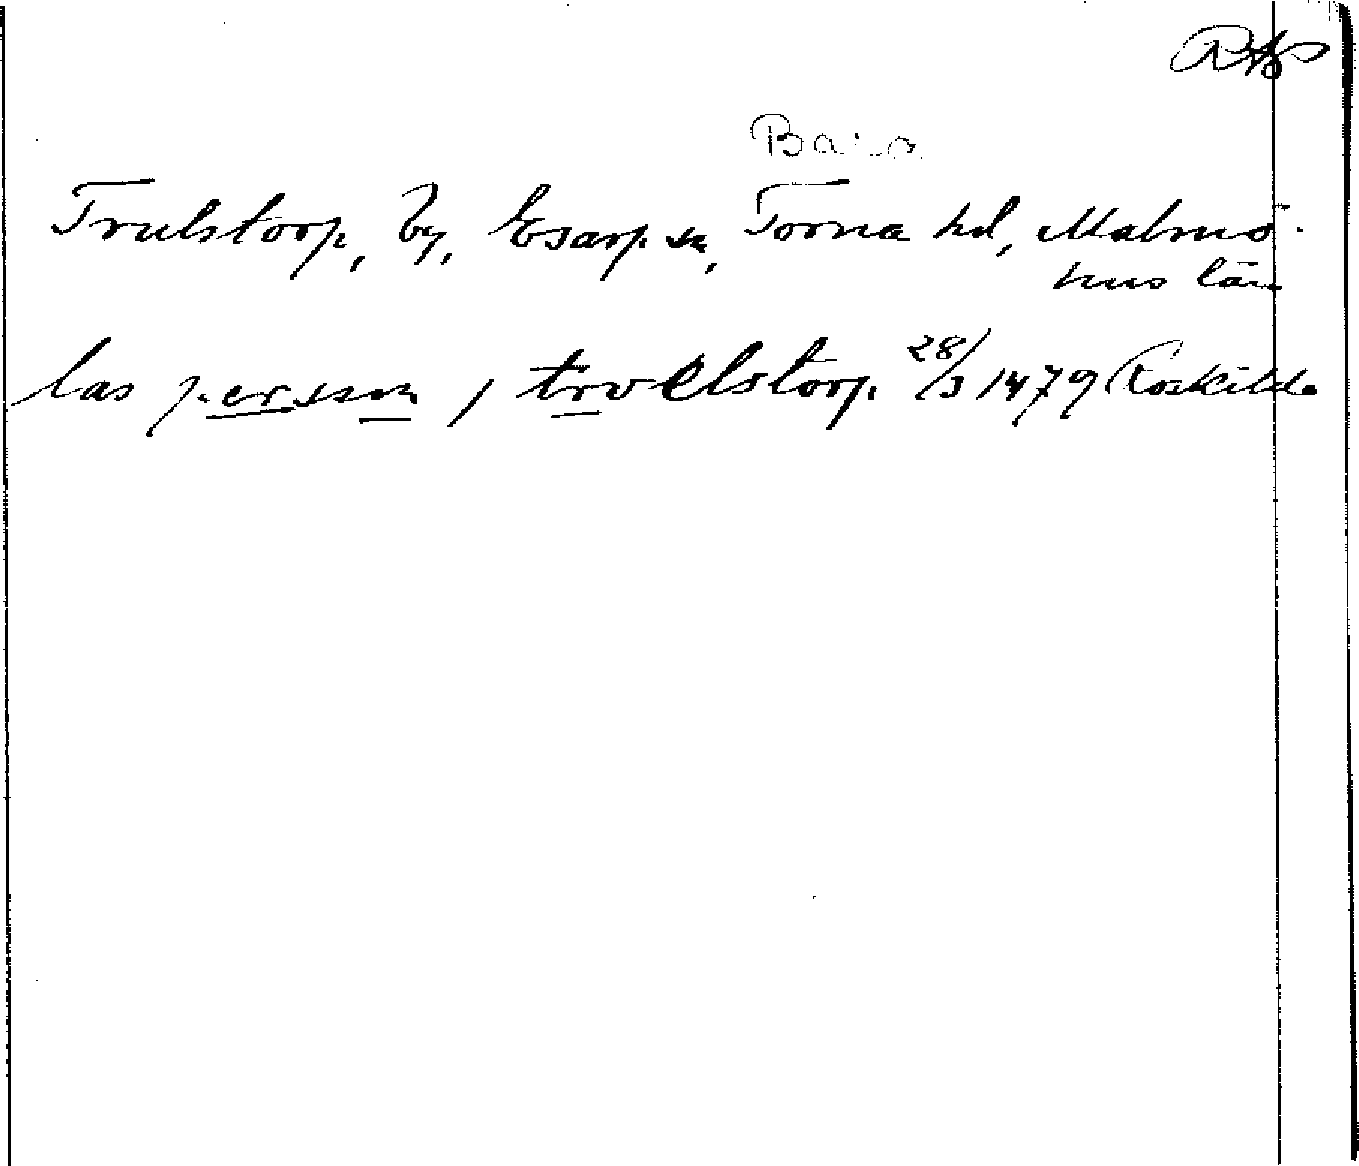 RAp
Bara
Trulstorp, by, Esarp sn, Torna hd, Malmö-
hus län
las persson, i troelstorp. 28/3 1479 Roskilde